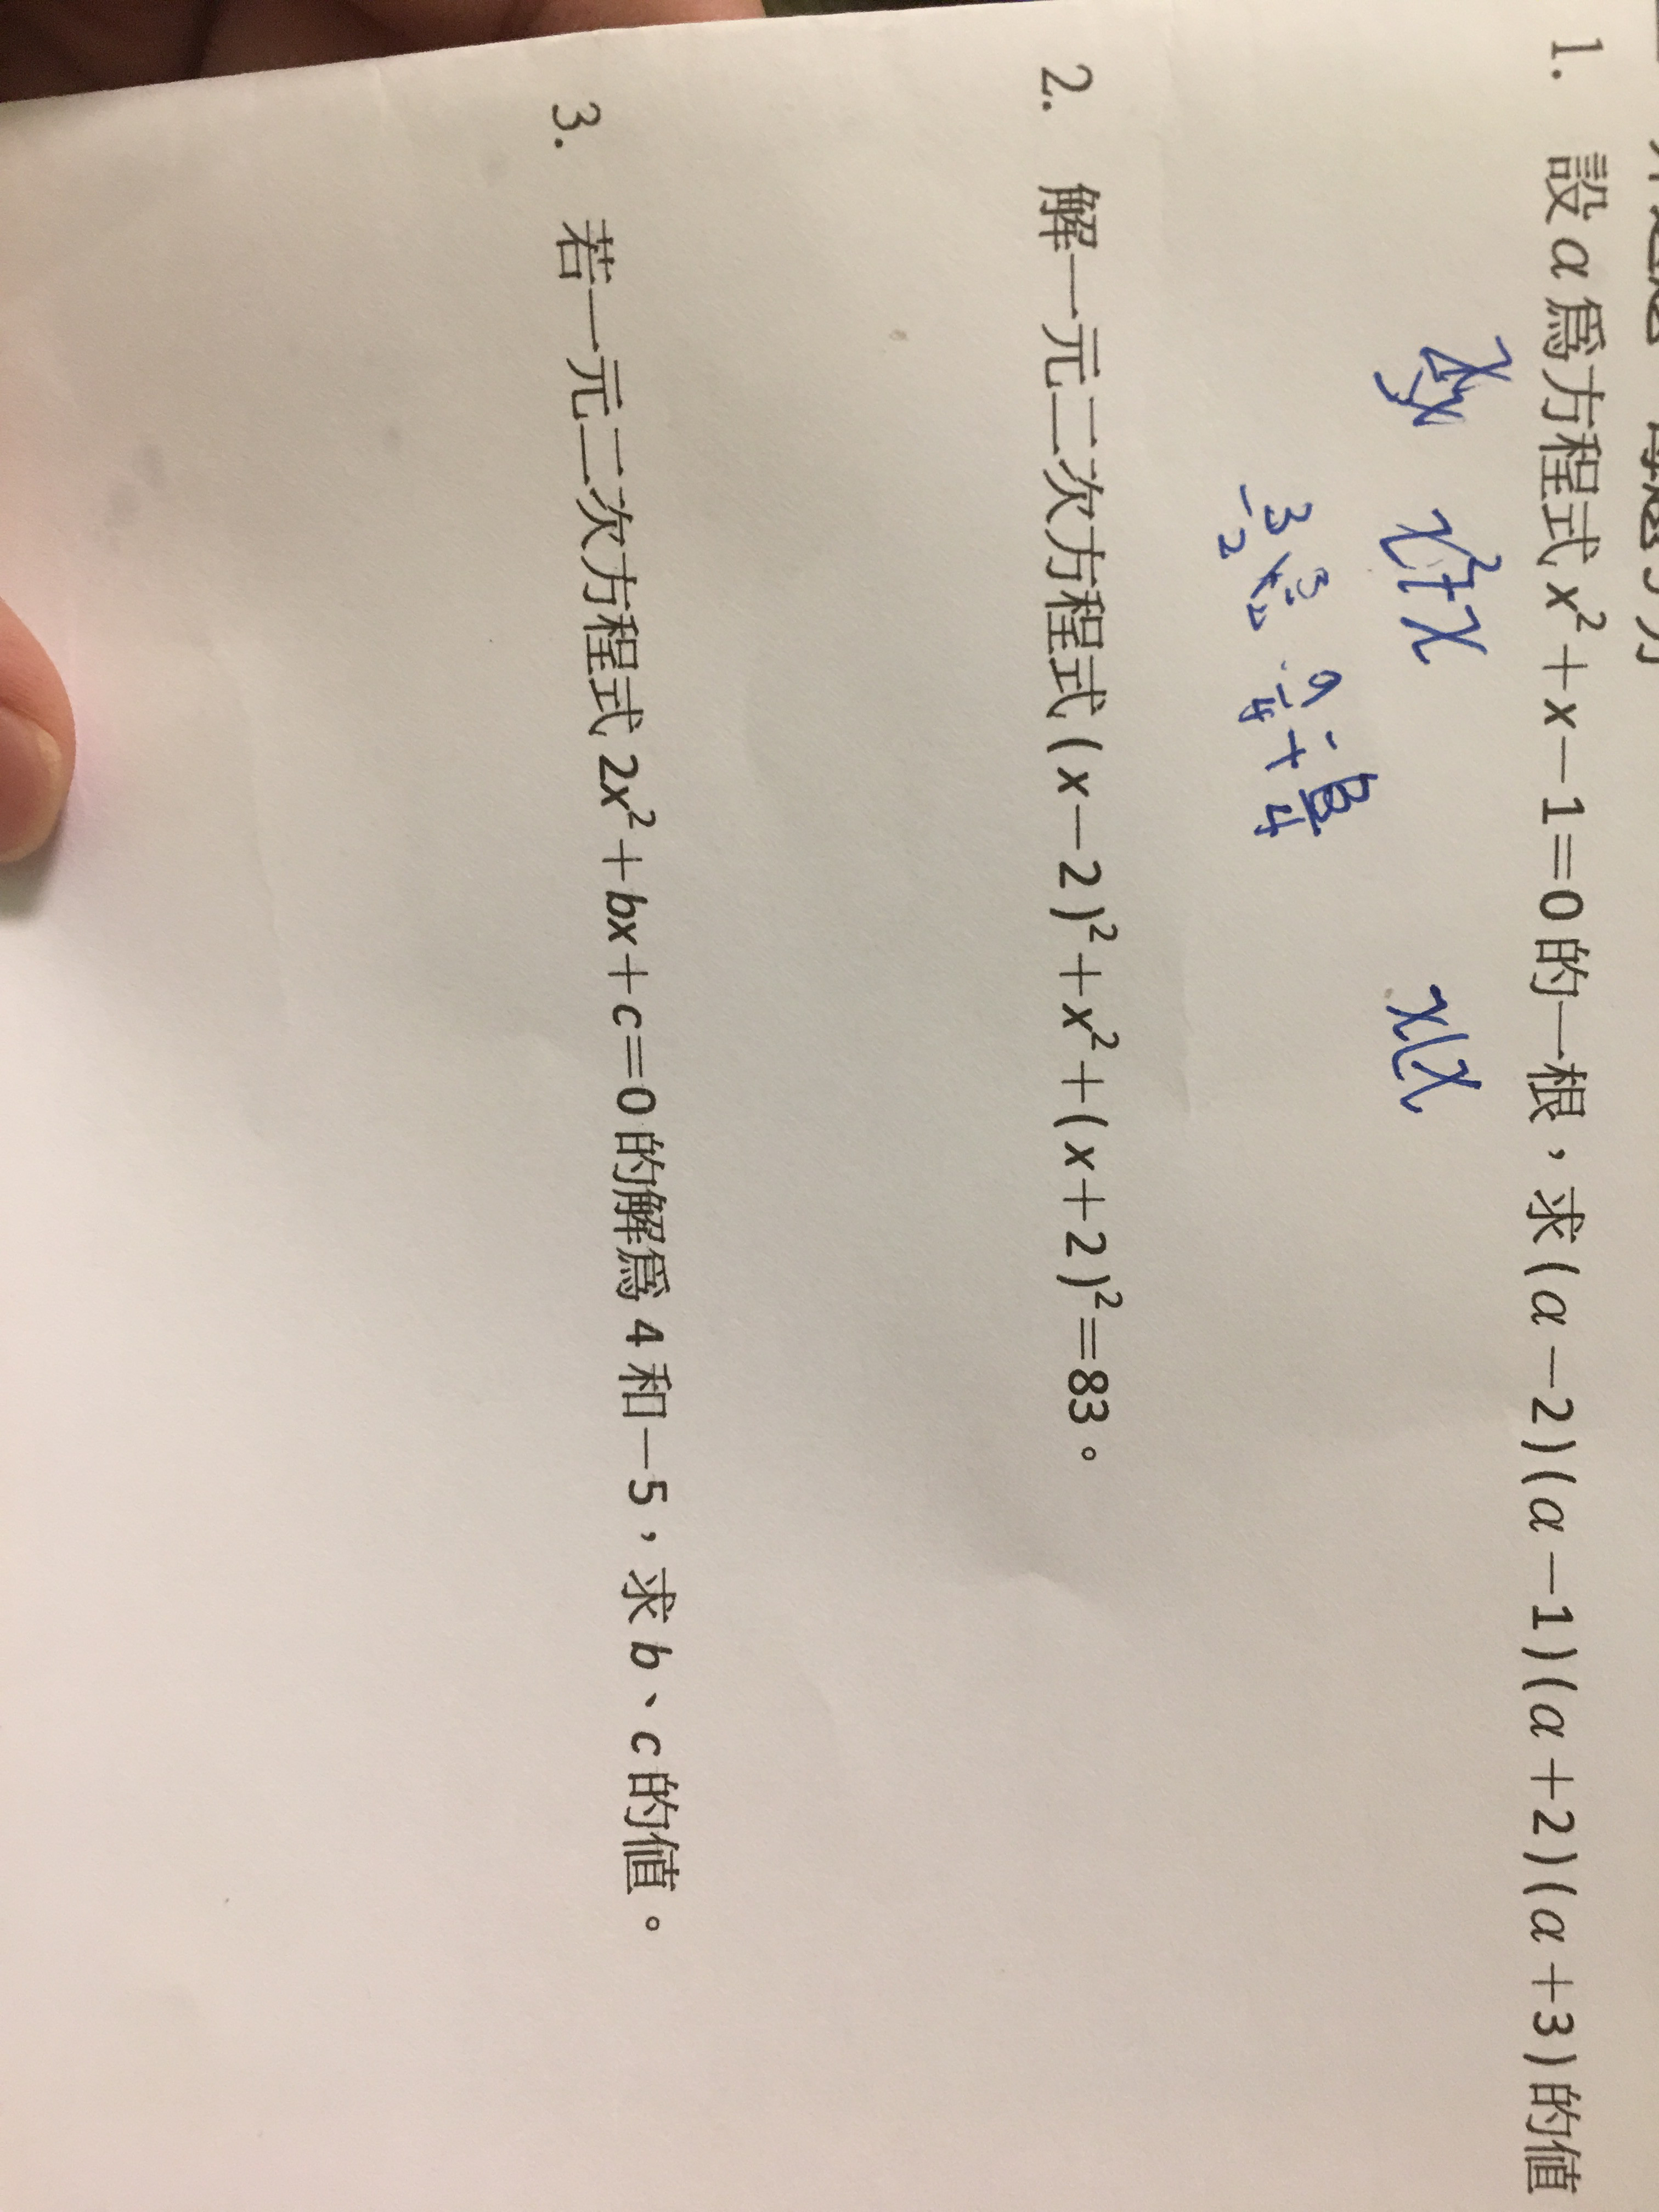 1. 設α為方程式x²+x-1=0的一根，求(α-2)(α-1)(α+2)(α+3)的值
x²+x
x(x
2. 解一元二次方程式(x-2)²+x²+(x+2)²=83。
3. 若一元二次方程式2x²+bx+c=0的解為4和-5，求b、c的值。